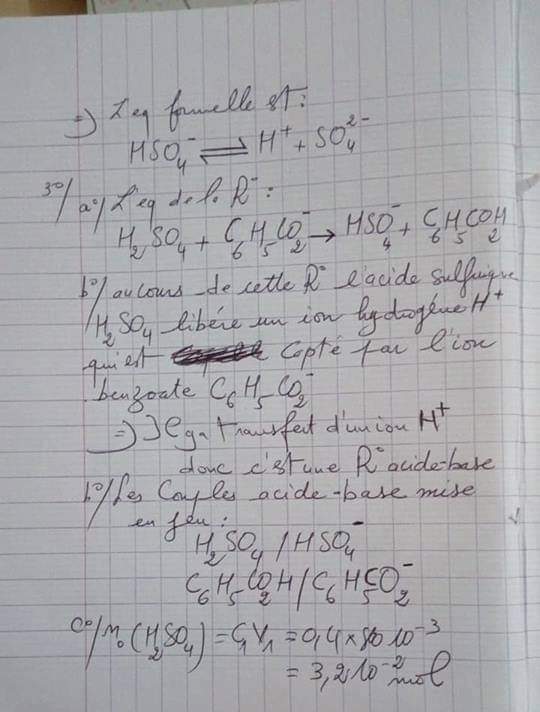 =) L'eq formelle est:
HSO₄⁻ ⇌ H⁺ + SO₄²⁻
3°/ a°/ L'eq de la R°:
H₂SO₄ + C₆H₅CO₂⁻ → HSO₄⁻ + C₆H₅CO₂H
b°/ au cours de cette R° l'acide sulfurique
H₂SO₄ libère un ion hydrogéne H⁺
qui est capté par l'ion
benzoate C₆H₅CO₂⁻
=) Il y a transfert d'un ion H⁺
donc c'est une R° acide-base
b°/ Les Couples acide-base mise
en jeu:
H₂SO₄ / HSO₄⁻
C₆H₅CO₂H / C₆H₅CO₂⁻
c°/ n₀(H₂SO₄) = C₁V₁ = 0,4 × 80 10⁻³
= 3,2 10⁻² mol